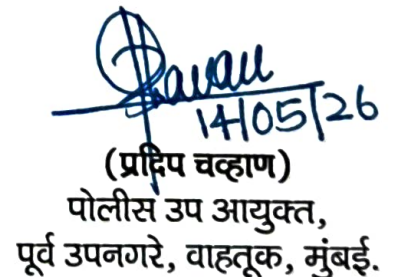 Chavan
14/05/26
(प्रदिप चव्हाण)
पोलीस उप आयुक्त,
पूर्व उपनगरे, वाहतूक, मुंबई.